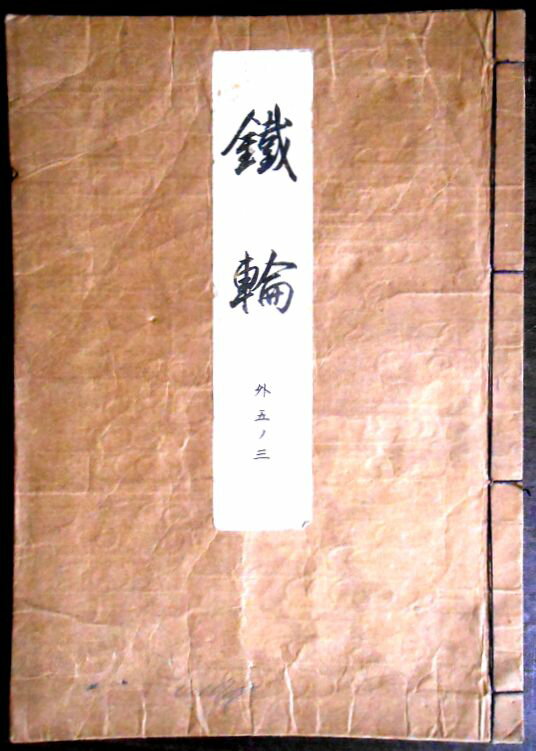 鐵輪
外五ノ三